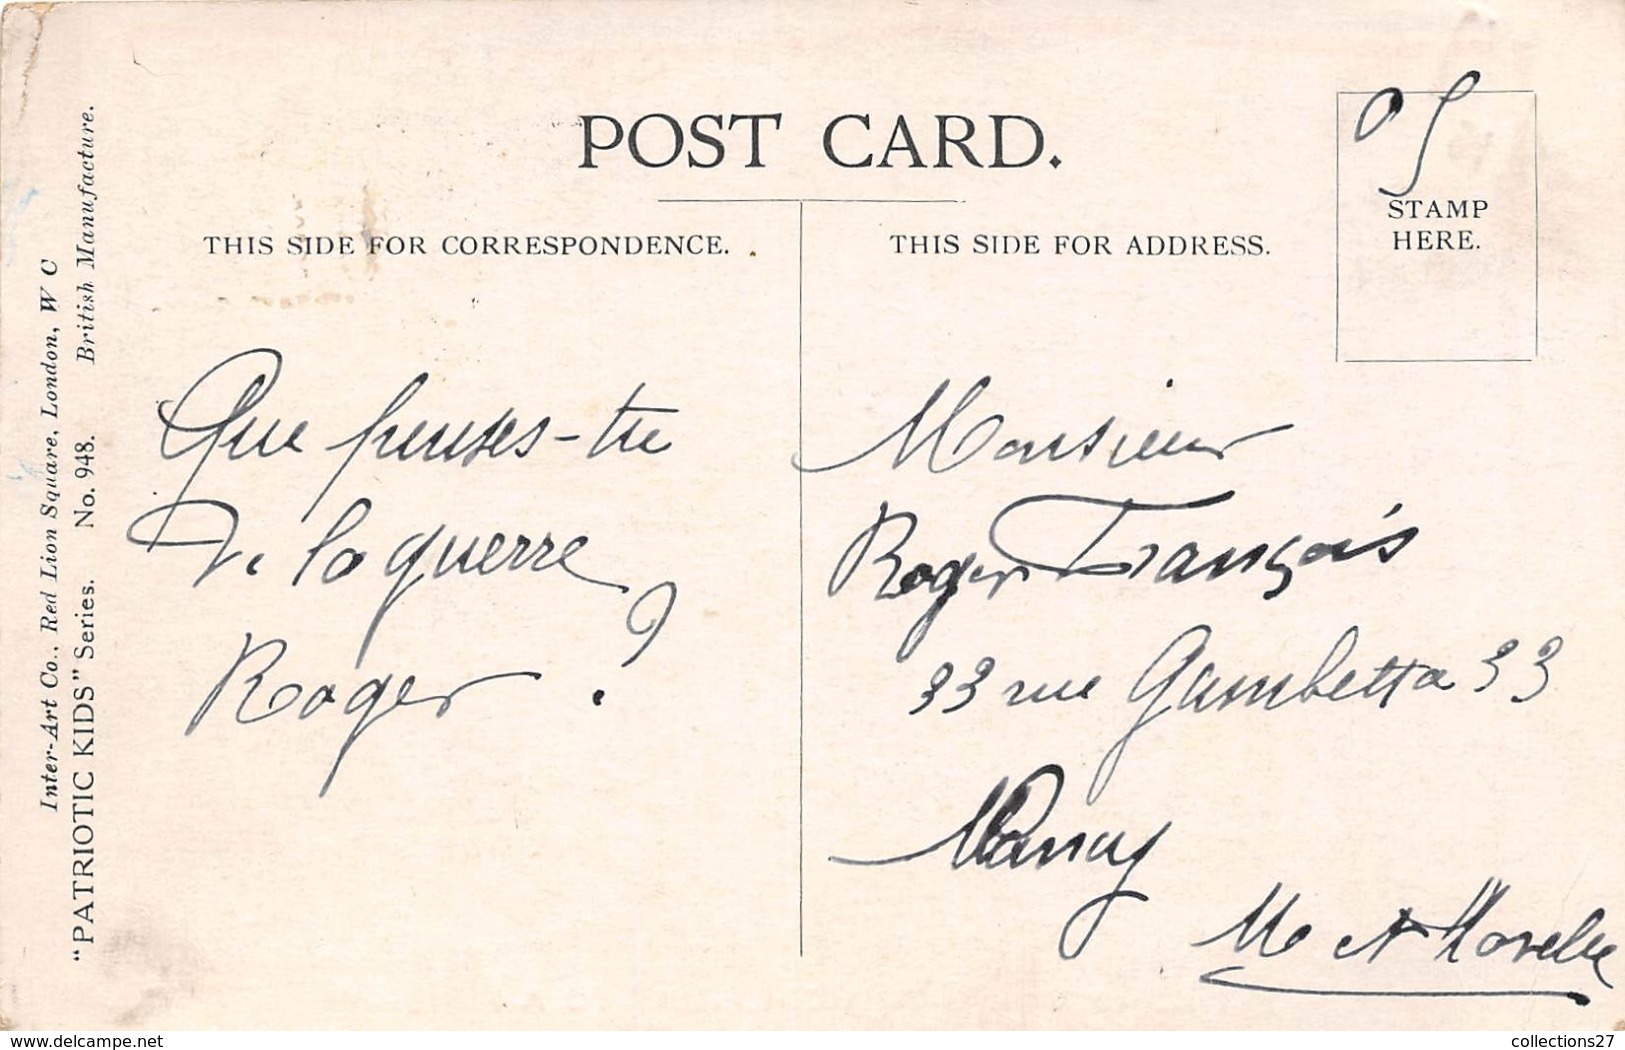 POST CARD.
THIS SIDE FOR CORRESPONDENCE.
THIS SIDE FOR ADDRESS.
STAMP
HERE.
Inter-Art Co., Red Lion Square, London, W C
"PATRIOTIC KIDS" Series. No. 948. British Manufacture.
Que penses-tu
De la guerre
Roger ?
Monsieur
Roger François
33 rue Gambetta 33
Nancy
M et Moselle
delcampe.net
collections27